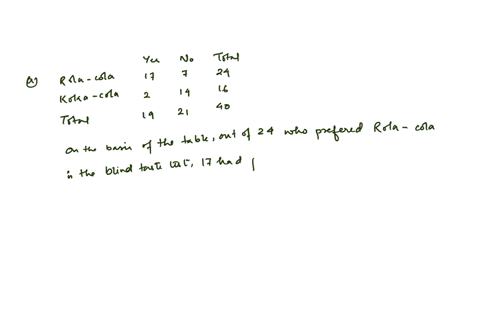 Yes No Total
a) Rola-cola 17 7 24
Koka-cola 2 14 16
Total 19 21 40
On the basis of the table, out of 24 who prefered Rola-cola
in the blind taste test, 17 had